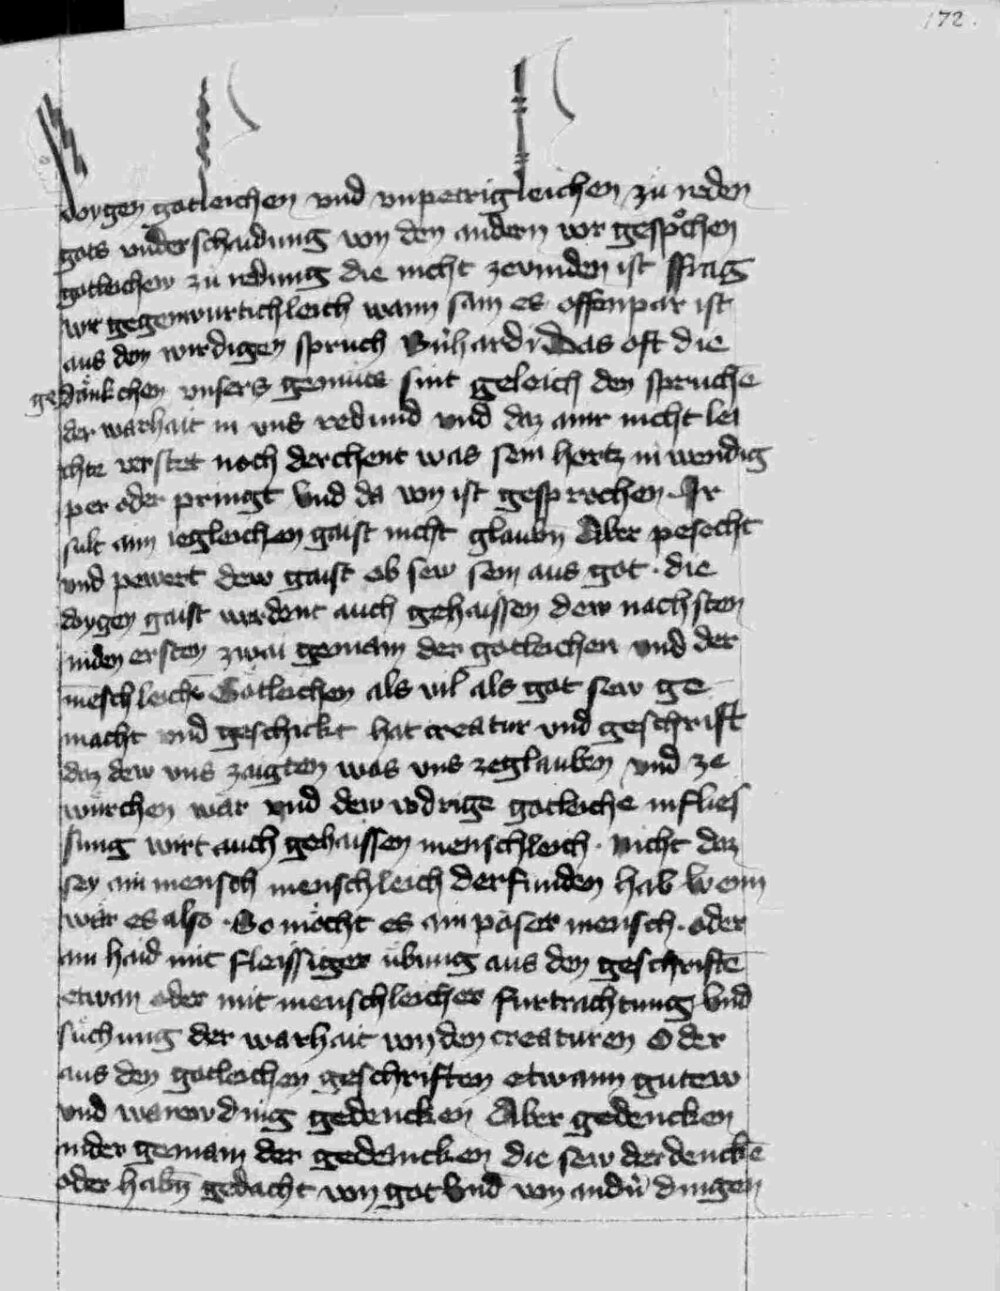 172.
dorgen gotleichen vnd vnpetrigleichen zu reden
gots vnderschaidung von den andern vor gesprochen
gotleichen zu redung die nicht zevinden ist ffrag
wir gegenwurtichleich wann sam es offenpar ist
aus den wirdigen spruch Bernhardi Das oft die
gedänkchen vnsers gemüts sint geleich den spruchē
der warhait in vns redund vnd daz aim nicht lei
chte verstet noch derchent was sein hertz inwendig
per oder pringt vnd da von ist gesprochen Ir
sult aim iegleichen gaist nicht glaubn̄ Aber pesecht
vnd pewert dew gaist ob sew sein aus got · die
dorgen gaist werdent auch gehaissen dew nachsten
in den ersten zwai gemain der gotleichen vnd der
mēschleichē Gotleichen als vil als got sew ge
macht vnd geschickt hat creatur vnd geschrift
daz dew vns zaigten was vns zeglauben vnd ze
würchen wär vnd dew vdrige gotleiche inflies
sung wirt auch gehaissen menschleich · nicht daz
sey ain mensch menschleich derfunden hab wenn
wär es also · So möcht es ain pöser mensch · oder
ain haid mit fleissiger übung aus den geschriftē
etwan oder mit menschleicher furtrachtung vnd
süchung der warhait von den creaturen Oder
aus den gotleichen geschriften etwann gutew
vnd warew ding gedencken Aber gedencken
in der gemain der gedencken die sew derdenckē
oder habn̄ gedacht von got vnd von andn̄ dingen